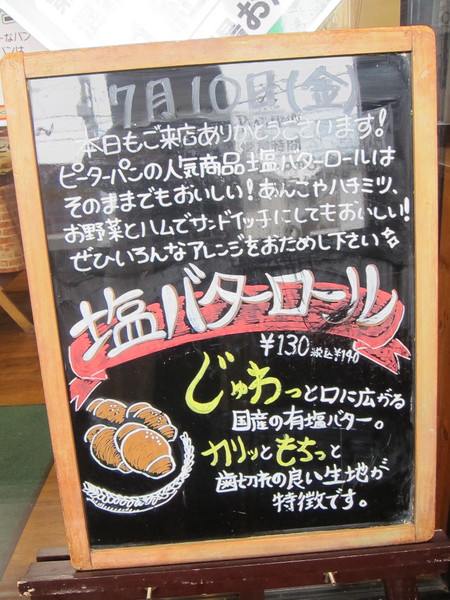 7月10日(金)
本日もご来店ありがとうございます!
ピーターパンの人気商品塩バターロールは
そのままでもおいしい!あんこやハチミツ、
お野菜とハムでサンドイッチにしてもおいしい!
ぜひいろんなアレンジをおためし下さい☆
塩バターロール
¥130 税込¥140
じゅわっと口に広がる
国産の有塩バター。
カリッともちっと
歯切れの良い生地が
特徴です。